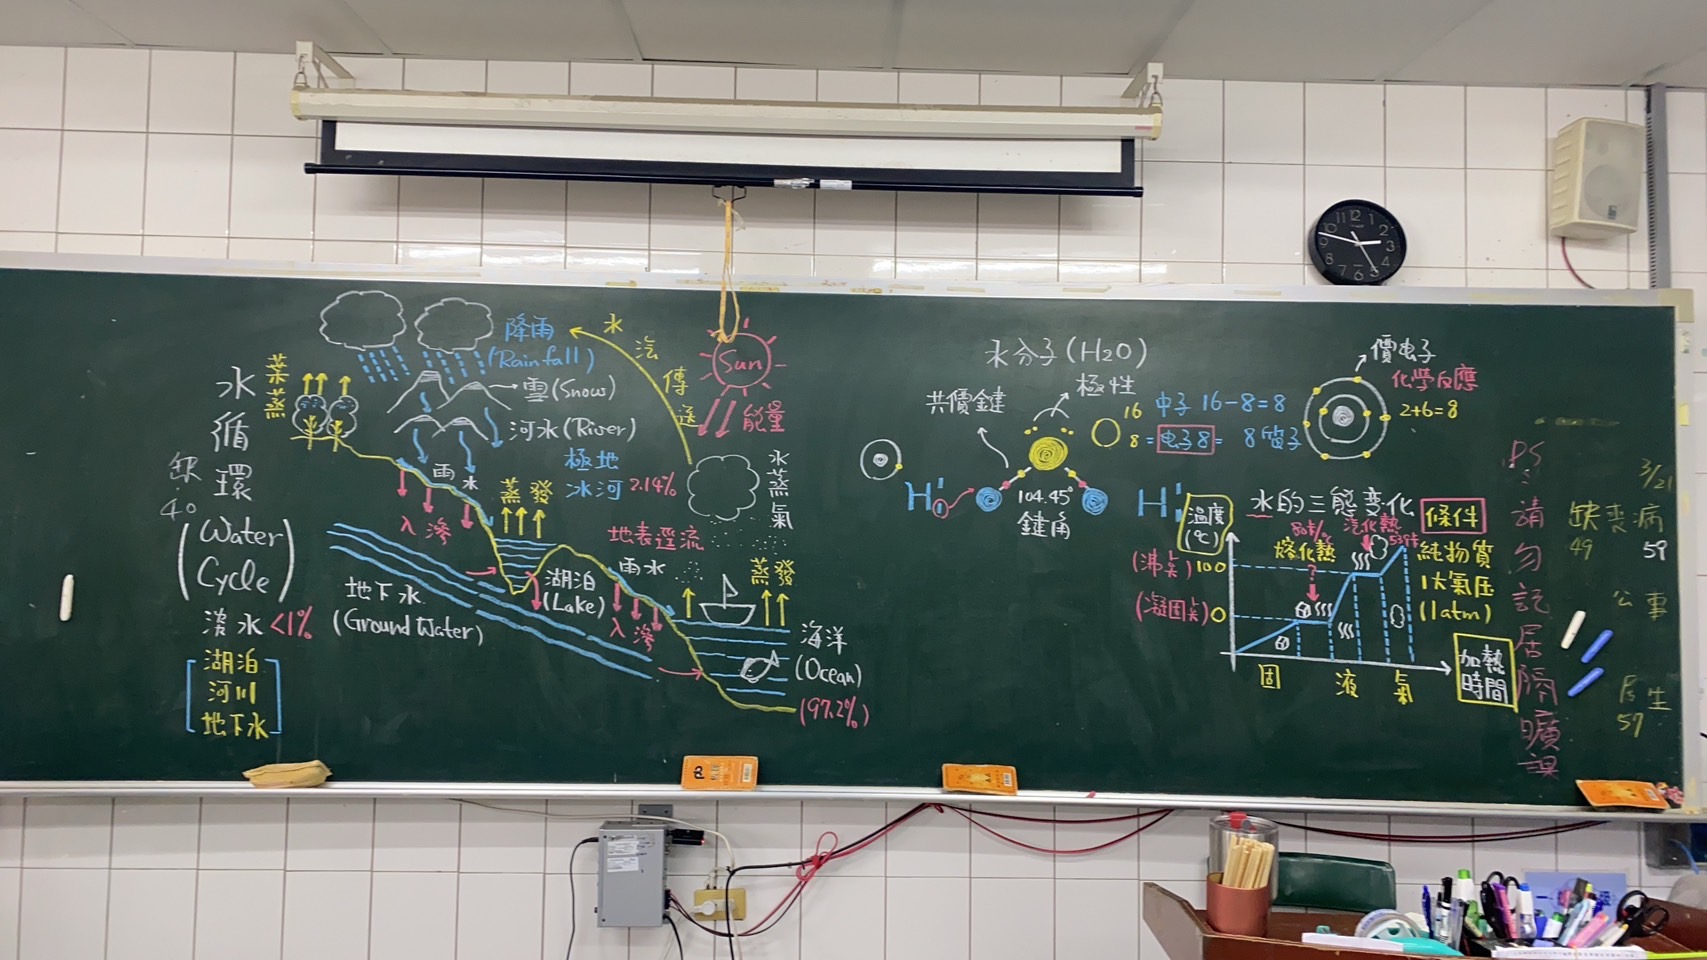 水循環
(Water Cycle)
缺
40
淡水 <1%
湖泊
河川
地下水
葉蒸
降雨
(Rainfall)
雪 (Snow)
河水 (River)
極地
冰河 2.14%
雨水
入滲
蒸發
地下水
(Ground Water)
湖泊
(Lake)
地表逕流
雨水
入滲
水汽傳送
Sun
能量
水蒸氣
蒸發
海洋
(Ocean)
(97.2%)
水分子 (H2O)
共價鍵
極性
104.45°
鍵角
H
H
16
8
中子 16-8=8
=电子8= 8 質子
價电子
化學反應
2+6=8
水的三態变化
條件
純物質
1大氣压
(1atm)
温度
(℃)
(沸点) 100
(凝固点) 0
熔化熱
汽化熱
固
液
氣
加熱
時間
PS:請勿記居隔曠課
3/21
缺 喪 病
49 59
公 事
59
12
1
2
3
4
5
6
7
8
9
10
11